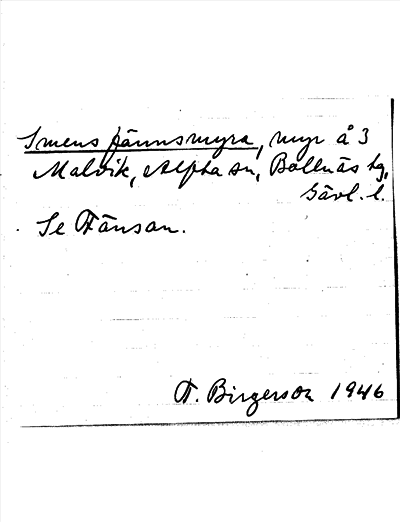 Smens fännsmyra, myr å 3
Malvik, Alfta sn, Bollnäs tg,
Gävl. l.
Se Fänsan.
F. Birgerson 1946